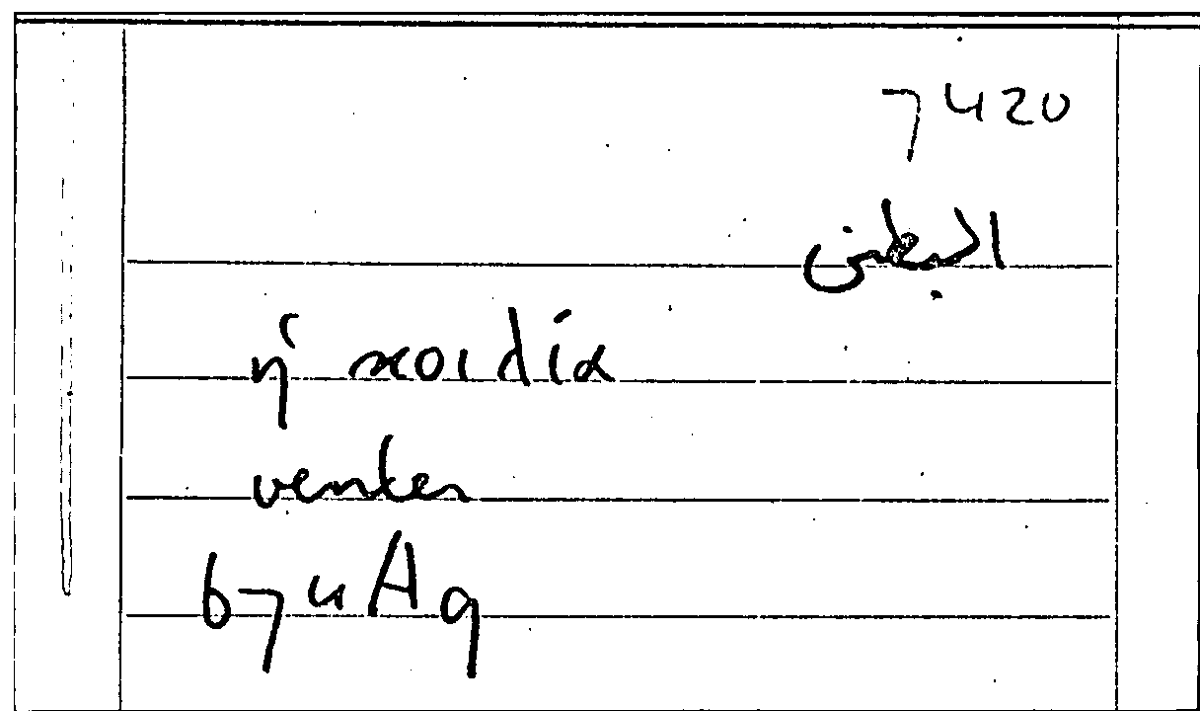 7420
البطن
ἡ κοιλία
venter
674A9